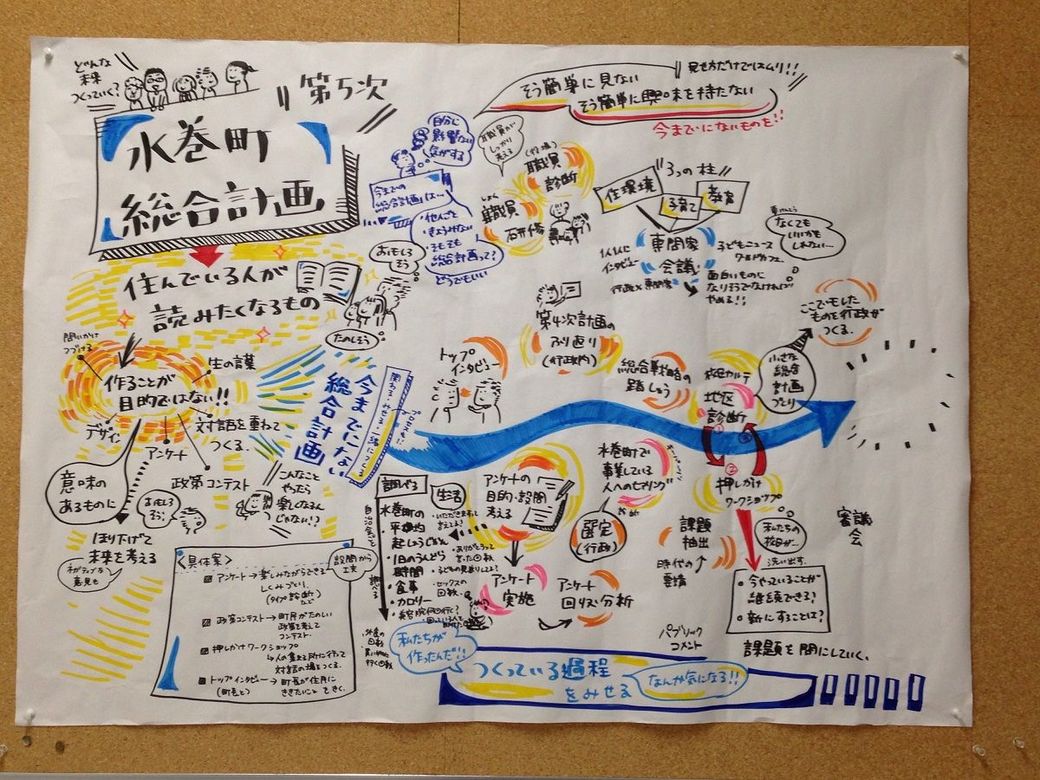 どんな
未来
つくっていく?
第5次
水巻町
総合計画
住んでいる人が
読みたくなるもの
おもしろそう
たのしそう
問いかけ
つづける
生の言葉
作ることが
目的ではない!!
デザイン
アンケート
対話を重ねて
つくる。
政策コンテスト
意味の
あるものに
おもしろそう!
こんなこと
やったら
楽しくなるん
じゃない!?
ほり下げて
未来を考える
ネガティブな
意見も
<具体案>
設問から
工夫
アンケート→楽しみながらできる
しくみづくり。
(タイプ診断)
など
政策コンテスト→町民がたのしい
政策を考えて
コンテスト。
押しかけワークショップ
↳人の集まる所に行って
対話の場をつくる。
トップインタビュー→町長が住民に
(町長と)
ききたいこときく。
自分に
影響ない
気がする
今までの
総合計画は…
・他人ごと
・きょうみない
・そもそも
総合計画って?
・どうでもいい
そう簡単に見ない
そう簡単に興味を持たない
見せ方だけではムリ!!
今までにないものを!!
職員が
しっかり
考える
職員
診断
職員
研修
3つの柱
住環境
子育て
教育
専門家
会議
1人1人に
インタビュー
行政×専門家
子どもニュース
ワールドカフェ
面白いものに
なりそうでなければ
やめる!!
なくても
いいかも
しれない…
第4次計画の
ふり返り
(行政内)
ここでもした
ものを行政が
つくる。
今までにない
総合計画
トップ
インタビュー
総合戦略の
踏しゅう
校区カルテ
地区
診断
小さな
総合
計画
づくり
調べる
生活
水巻町の
平均
起しょうじかん
・1日のうんどう
時間
・食事
・カロリー
アンケートの
目的・設問
考える
アンケート
実施
アンケート
回収・分析
水巻町で
事業している
人へのヒアリング
選定
(行政)
課題
抽出
時代の
要請
①
②
押しかけ
ワークショップ
私たちの
校区が…
洗い出す。
・今やっていることが
継続できる?
・新にすることは?
課題を問にしていく。
審議
会
パブリック
コメント
私たちが
作ったんだ!!
つくっている過程
をみせる
なんか気になる!!